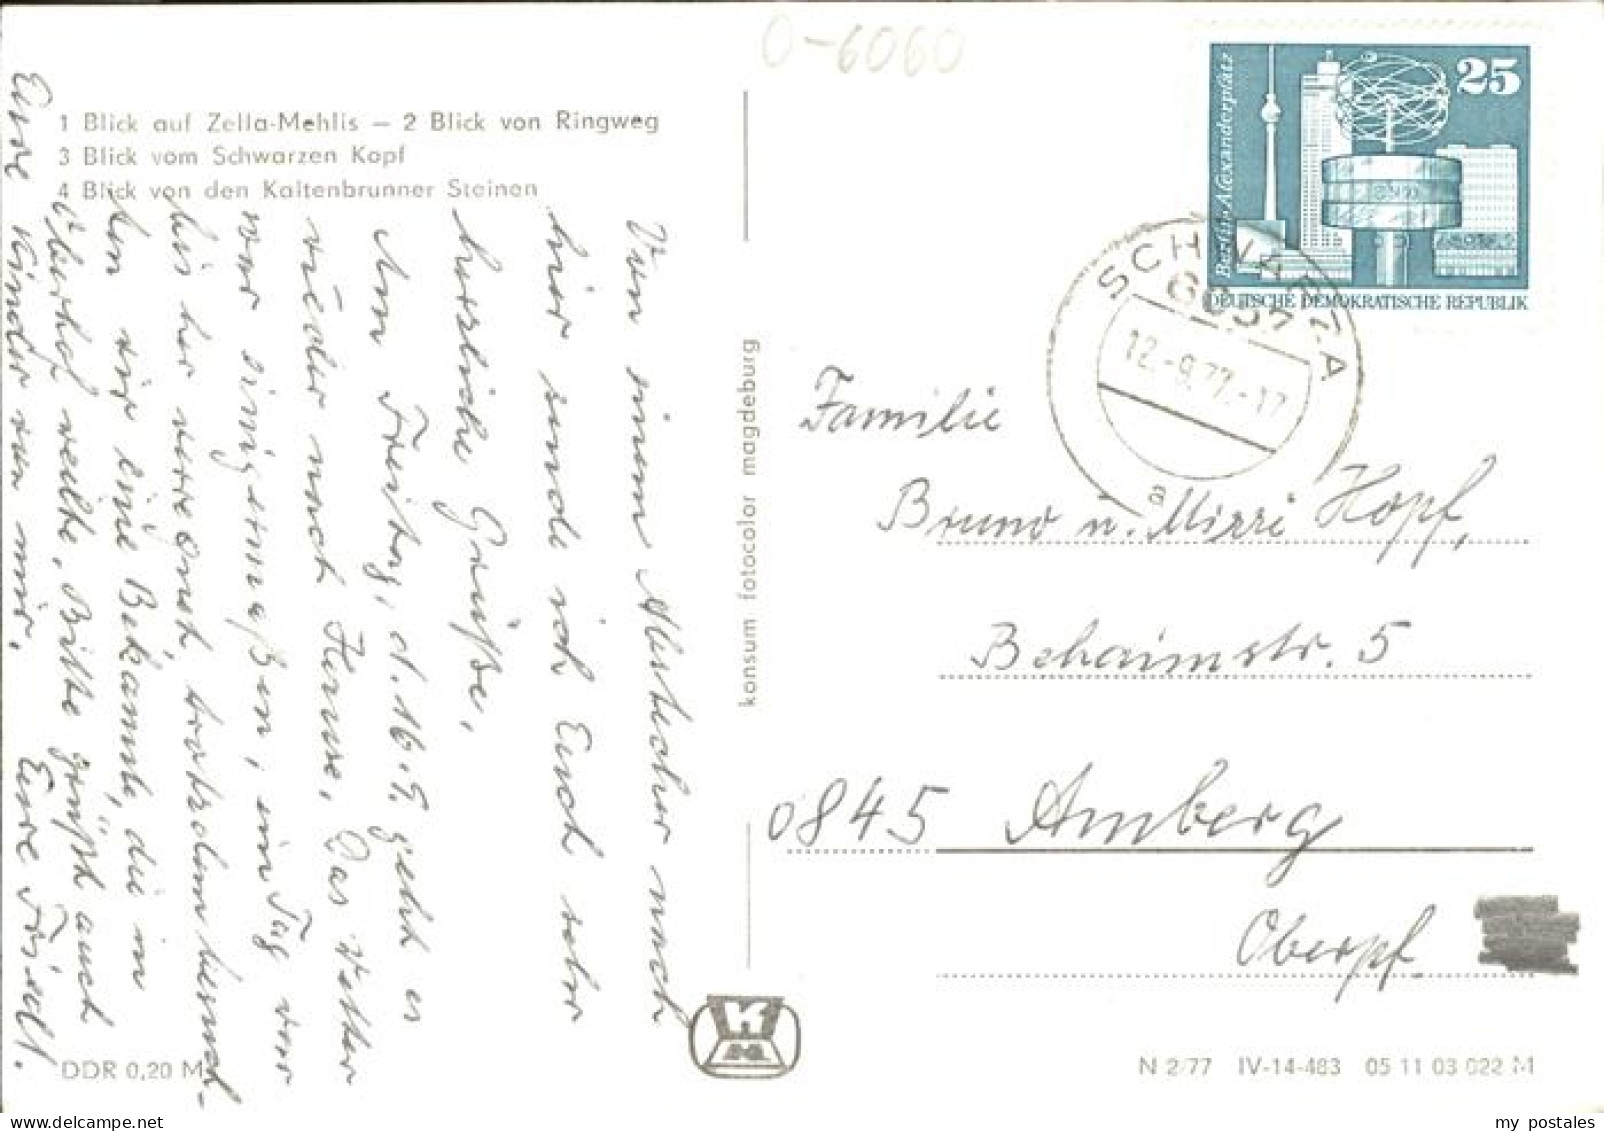 O-6060
1 Blick auf Zella-Mehlis – 2 Blick von Ringweg
3 Blick vom Schwarzen Kopf
4 Blick von den Kaltenbrunner Steinen
Von einem Abstecher nach
hier sende ich Euch sehr
herzliche Grüße.
Am Freitag, d. 16.9. geht es
wieder nach Hause. Das Wetter
war einigermaßen, ein Tag war
bis her verregnet, trotzdem besuch-
ten wir eine Bekannte, die in
Oberhof weilte. Bitte grüßt auch
Eure Kinder von mir. Eure Friedl.
DDR 0,20 M
konsum fotocolor magdeburg
K
Berlin-Alexanderplatz
25
DEUTSCHE DEMOKRATISCHE REPUBLIK
SCHWARZA
12.-9.77.-17
a
Familie
Bruno u. Mizzi Hopf,
Behaimstr. 5
0845 Amberg
Oberpf.
N 2/77 IV-14-483 05 11 03 022 M
my postales